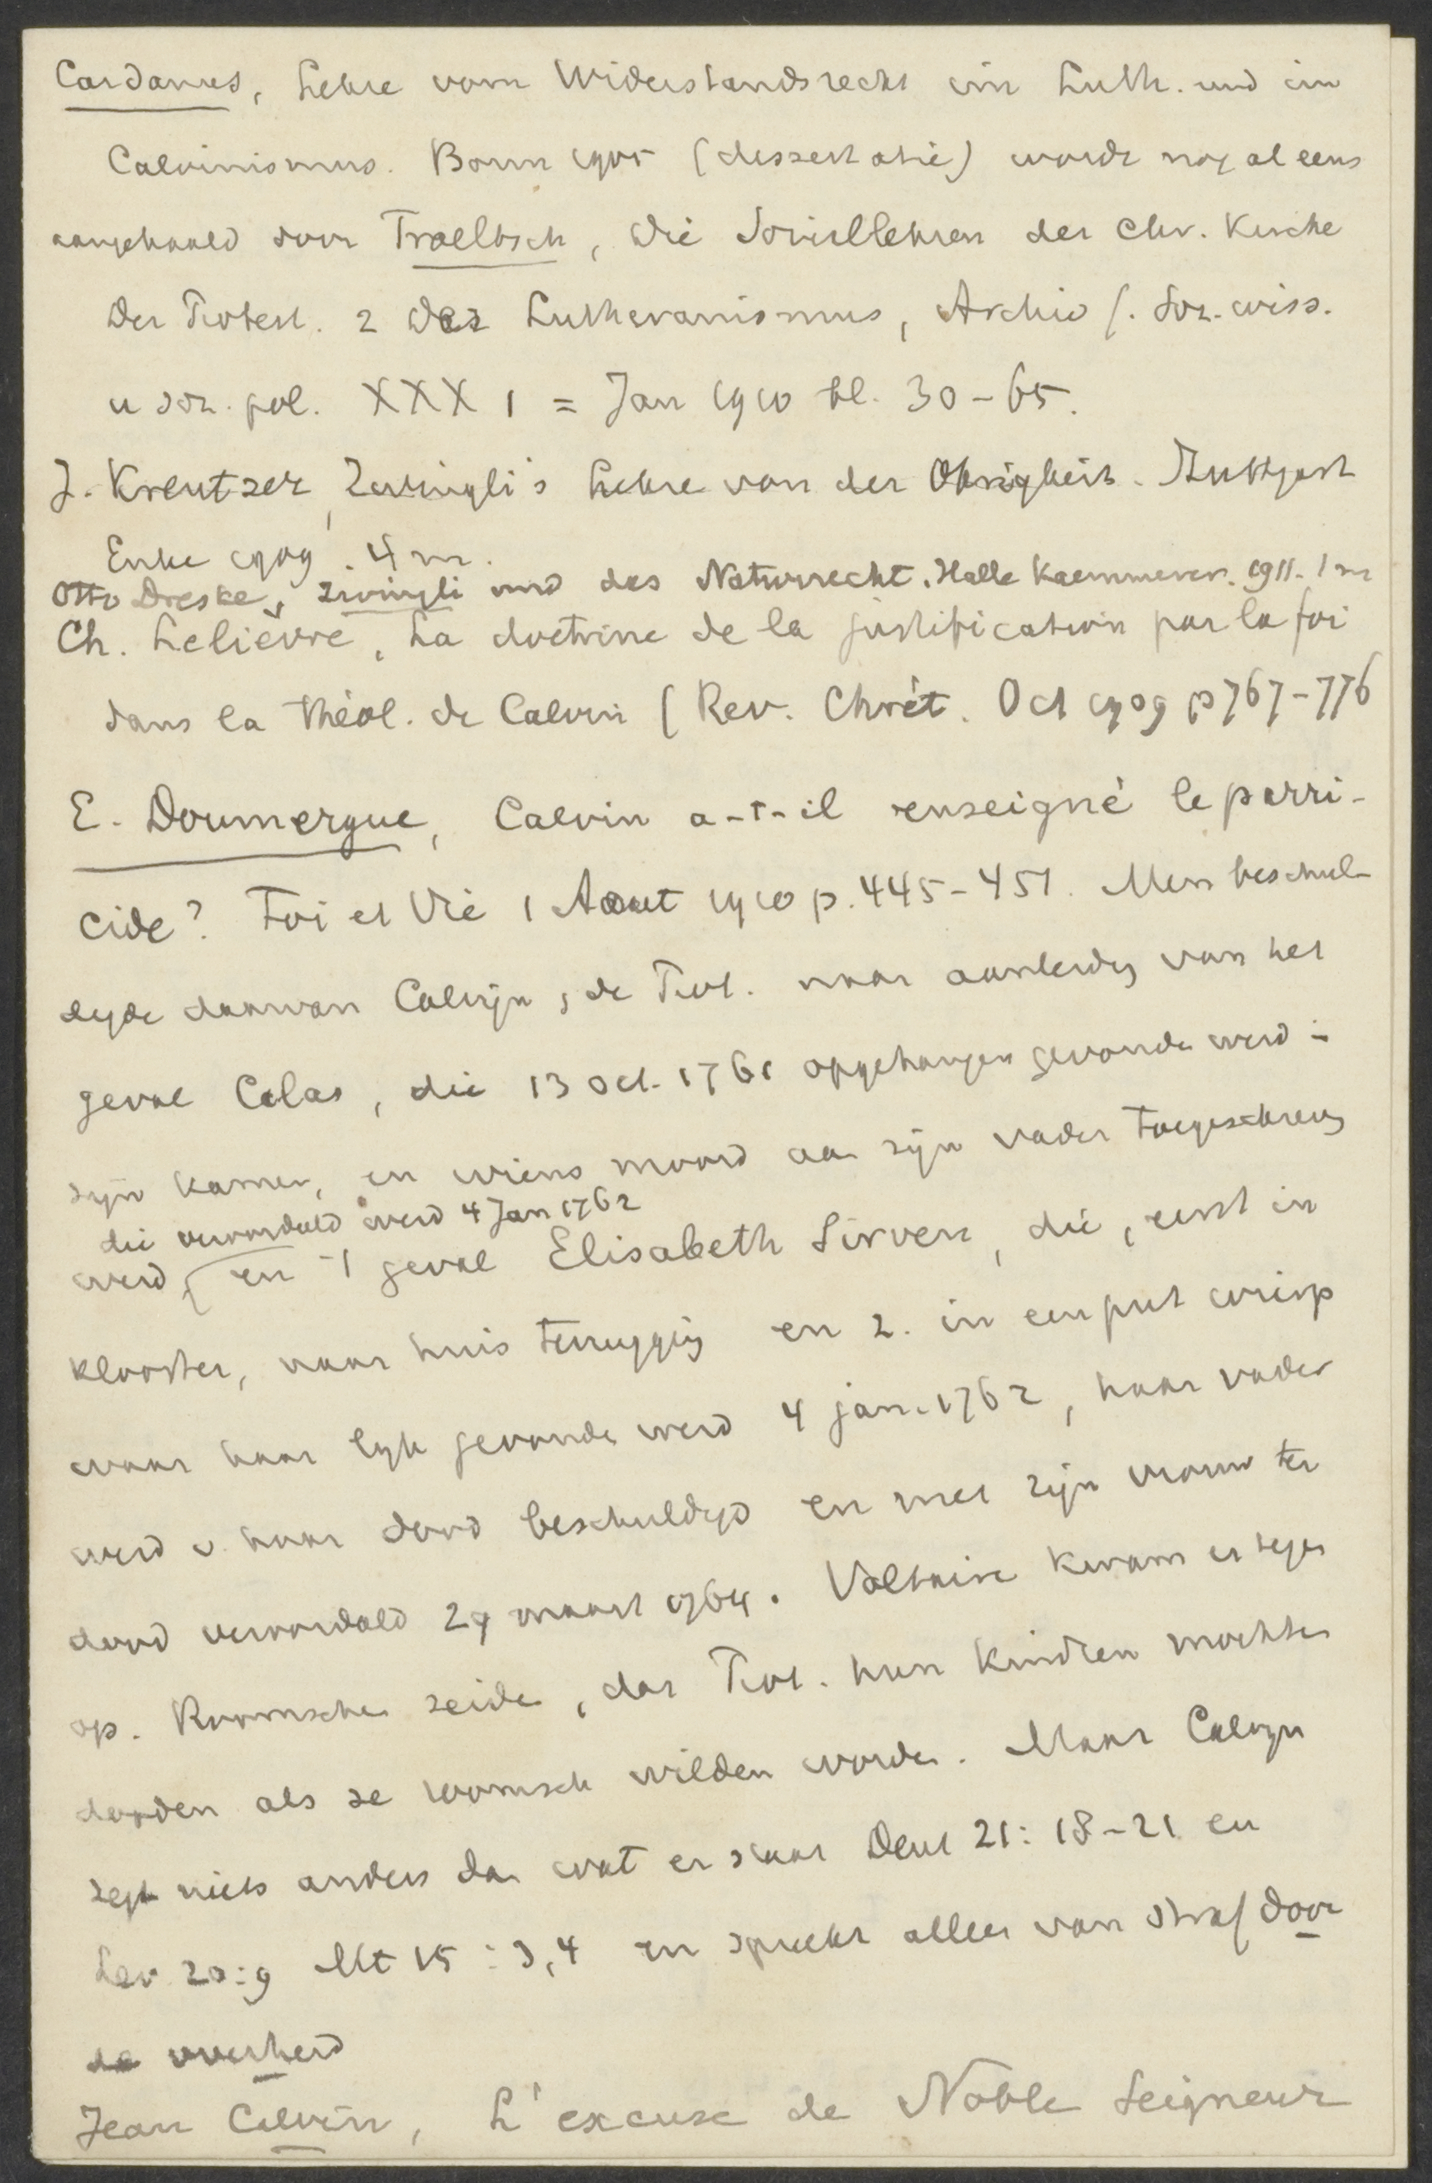 Cardanus, Lehre vom Widerstandsrecht im Luth. und im
Calvinismus. Bonn 1905 (dissertatie) wordt nog al eens
aangehaald door Troeltsch, Die Soziallehren der chr. Kirche
Der Protest. 2 Der Lutheranismus, Archiv f. Soz. wiss.
u soz. pol. XXX 1 = Jan 1910 bl. 30-65.
J. Kreutzer, Zwingli's Lehre von der Obrigkeit. Stuttgart
Enke 1909. 4 m.
Otto Dreske, Zwingli und das Naturrecht. Halle Kaemmerer. 1911. 1 m
Ch. Lelièvre, La doctrine de la justification par la foi
dans la théol. de Calvin (Rev. Chrét. Oct 1909 p 767-776
E. Doumergue, Calvin a-t-il enseigné le parri-
cide? Foi et Vie 1 Aout 1910 p. 445-451. Men beschul-
digde daarvan Calvijn, de Prot. naar aanleidg van het
geval Calas, die 13 Oct. 1761 opgehangen gevonden werd in
zijn kamer, en wiens moord aan zijn vader toegeschreven
die veroordeeld werd 4 Jan 1762
werd, en 't geval Elisabeth Sirven, die, eerst in
klooster, naar huis terugging en 2. in een put
waar haar lijk gevonden werd 4 jan. 1762, haar vader
werd v. haar dood beschuldigd en met zijn vrouw ter
dood veroordeeld 29 maart 1764. Voltaire kwam er tegen
op. Roomschen zeiden, dat Prot. hun kindren mochten
dooden als ze roomsch wilden worden. Maar Calvijn
zegt niets anders dan wat er staat Deut 21: 18-21 en
Lev 20:9 Mt 15:3,4 en spreekt alleen van straf door
de overheid
Jean Calvin, L'excuse de Noble Seigneur